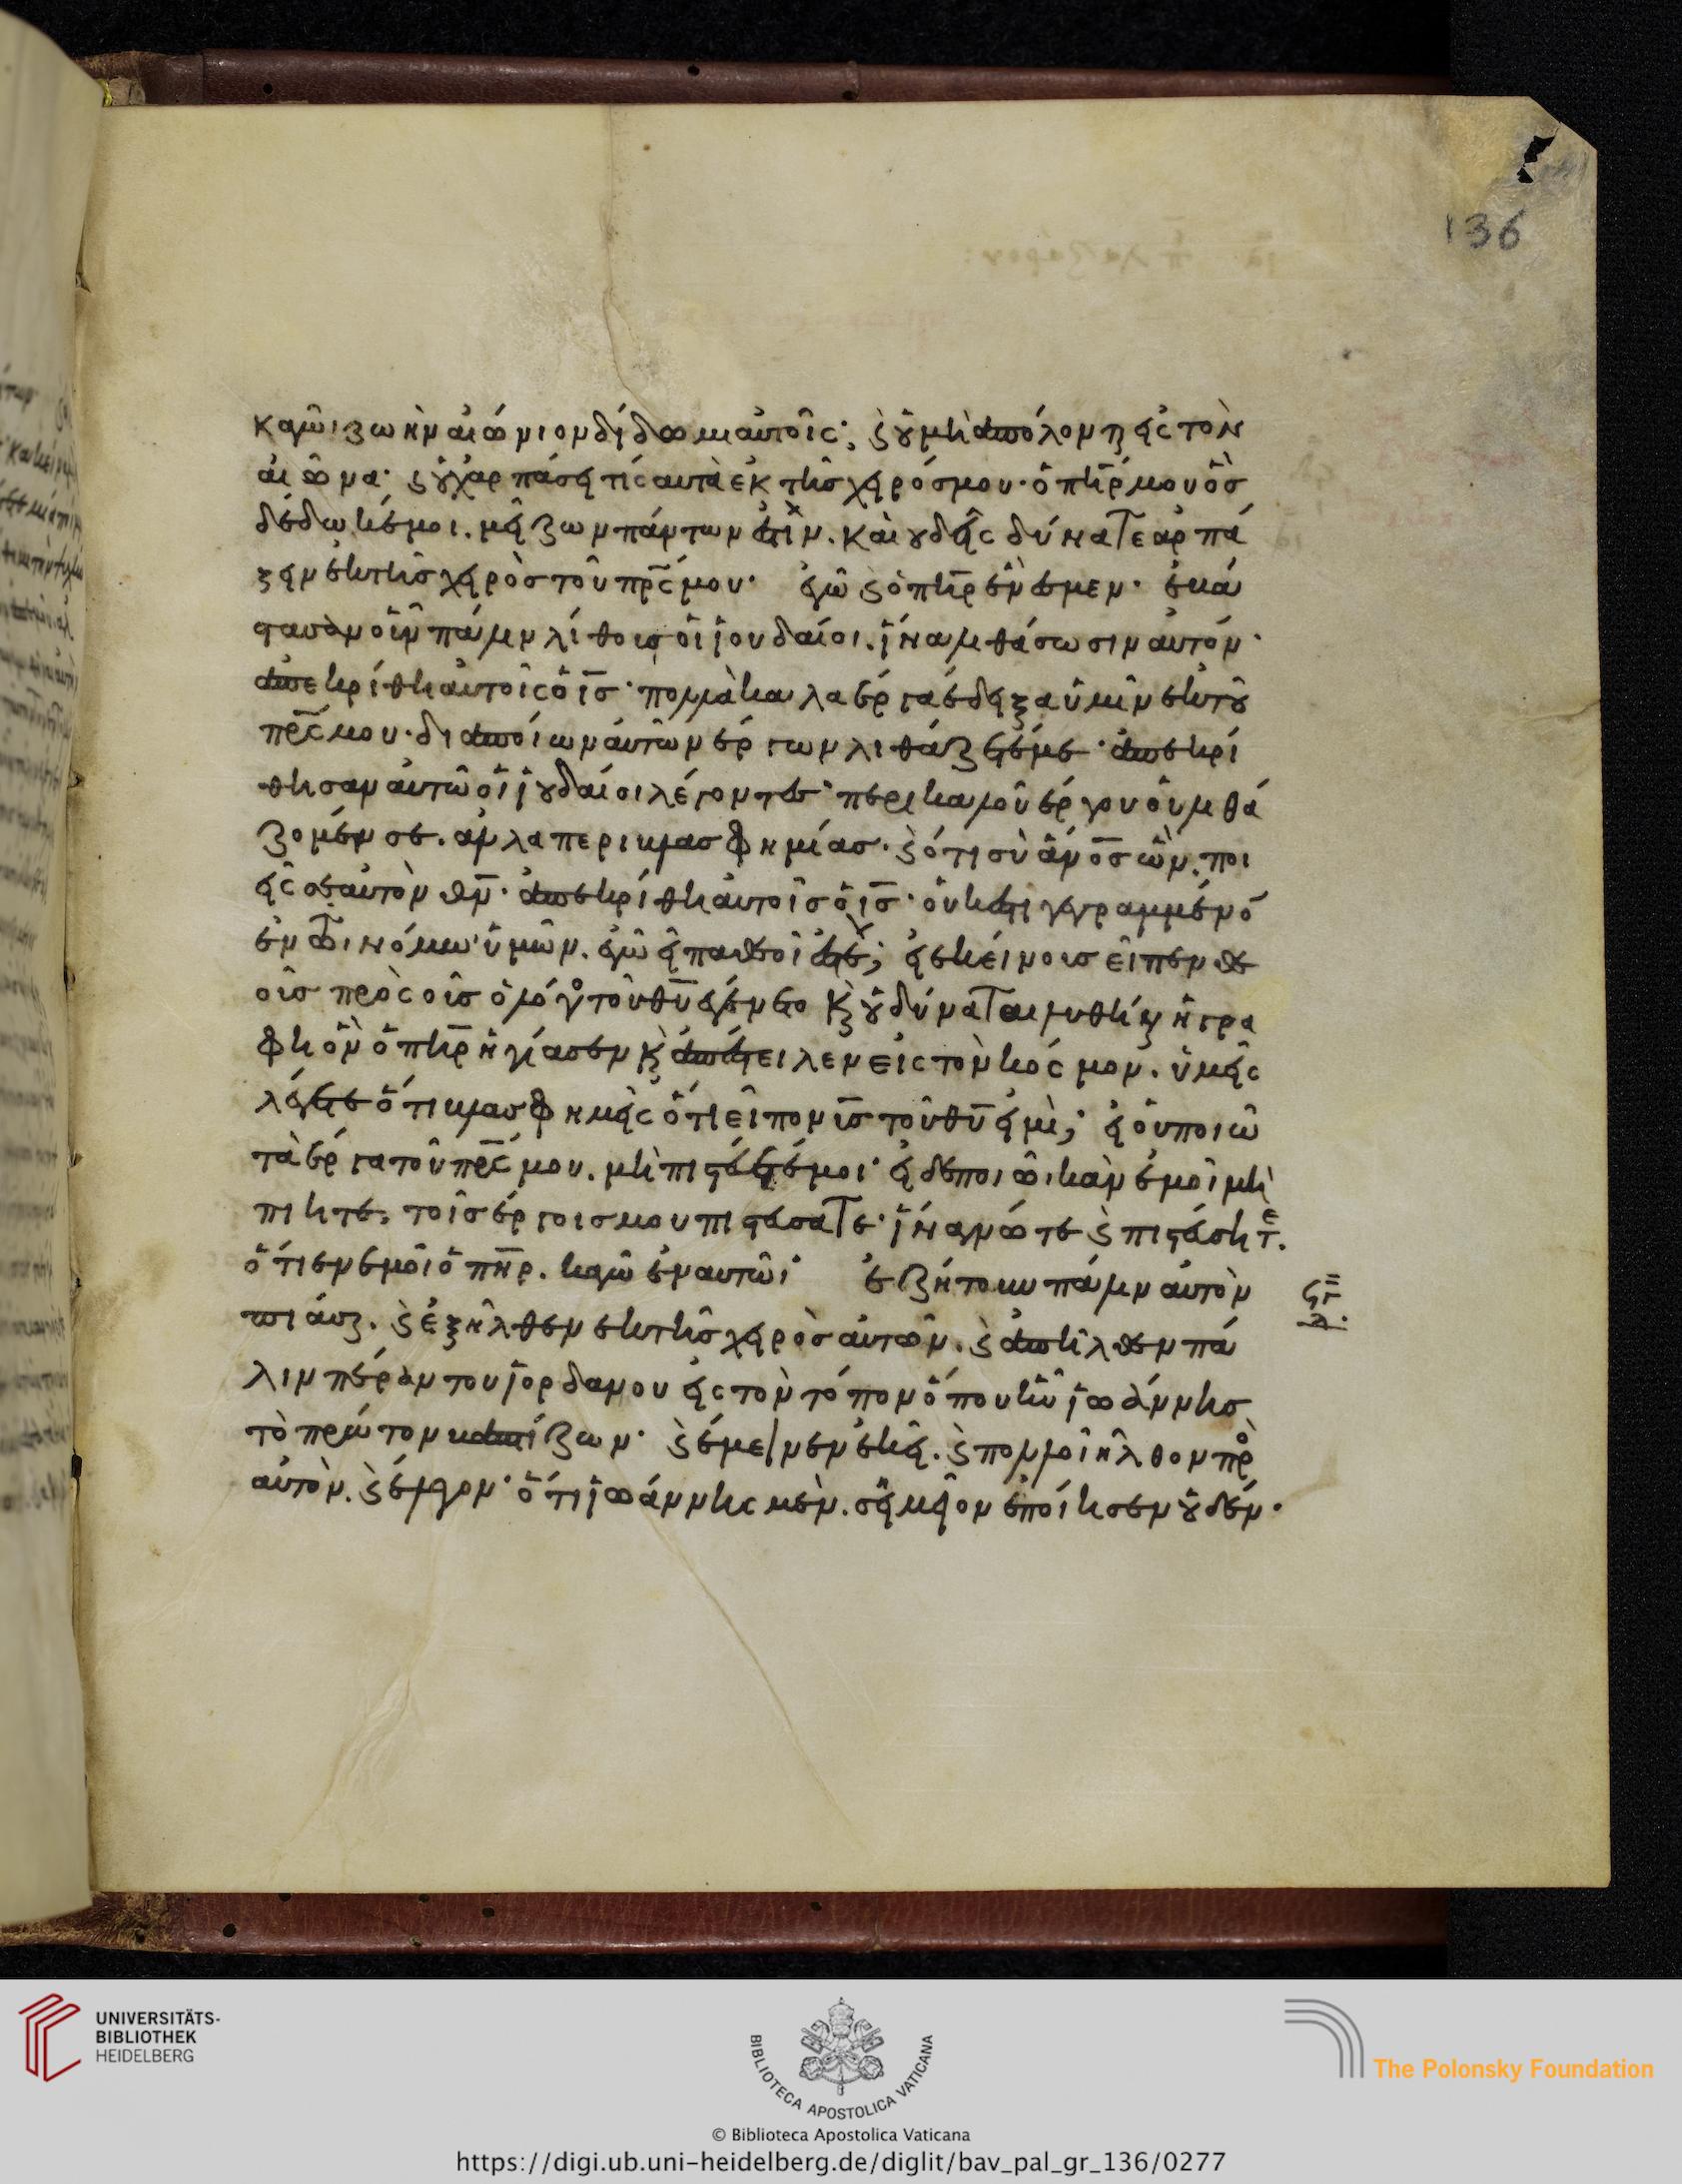 136
καγὼ ζωὴν αἰώνιον δίδωμι αὐτοῖς· ϗ οὐ μὴ ἀπόλονται εἰς τὸν
αἰῶνα· ϗ οὐχ ἁρπάσει τίς αὐτὰ ἐκ τῆς χειρός μου· ὁ πηρ μου ὃς
δέδωκέ μοι. μείζων πάντων ἐστὶν. καὶ οὐδεὶς δύναται ἁρπά
ζειν ἐκ τῆς χειρὸς τοῦ πρς μου· ἐγὼ ϗ ὁ πηρ ἕν ἐσμεν· ἐβά
στασαν οὖν πάλιν λίθους οἱ ἰουδαίοι. ἵνα λιθάσωσιν αὐτόν·
ἀπεκρίθη αὐτοῖς ὁ ις· πολλὰ καλα έργα ἔδειξα ὑμῖν ἐκ τοῦ
πρς μου· διαποίων αὐτῶν έργων λιθάζετέ με· ἀπεκρί
θησαν αὐτῶ οἱ ἰουδαίοι λέγοντες· περι καλοῦ έργου οὐ λιθά
ζομέν σε. αλλα περι βλασφημίας· ϗ ότι σὺ ἄνος ὢν. ποι
εῖς σεαυτὸν θν· ἀπεκρίθη αὐτοῖς ὁ ις· οὐκ έστι γεγραμμένο
ἐν τῶι νόμω ὑμῶν. ἐγὼ εἶπα θεοί ἐστέ; εἰ ἐκείνους εἶπεν θε
οὺς πρὸς οὓς ὁ λόγος τοῦ θυ ἐγένετο ϗ οὐ δύναται λυθήναι ἡ γρα
φὴ ὃν ὁ πηρ ἡγίασεν ϗ ἀπέστειλεν εἰς τὸν κόσμον. ὑμεῖς
λέγετε ὅτι βλασφημεῖς ὅτι εἶπον υς τοῦ θυ εἰμὶ; εἰ οὐ ποιῶ
τὰ έργα τοῦ πρς μου. μὴ πιστεύετέ μοι· εἰ δὲ ποιῶ. κὰν ἐμοὶ μὴ
πιητε. τοῖς έργοις μου πιστεύσατε· ἵνα γνῶτε ϗ πιστεύσητε.
ὅτι ἐν ἐμοὶ ὁ πηρ. καγὼ ἐν αυτῶι· ἐζήτουν πάλιν αὐτὸν
πιάσαι. ϗ ἐξῆλθεν ἐκ τῆς χειρὸς αὐτῶν. ϗ ἀπῆλθεν πά
λιν πέραν του ἰορδανου εἰς τὸν τόπον ὅπου ἦν ἰωάννης
τὸ πρώτον βαπτίζων· ϗ έμεινεν ἐκεῖ. ϗ πολλοὶ ἦλθον πρὸ
αὐτὸν. ϗ έλεγον· ὅτι ἰωάννης μὲν. σημεῖον ἐποίησεν οὐδέν·
UNIVERSITÄTS-
BIBLIOTHEK
HEIDELBERG
BIBLIOTECA APOSTOLICA VATICANA
The Polonsky Foundation
© Biblioteca Apostolica Vaticana
https://digi.ub.uni-heidelberg.de/diglit/bav_pal_gr_136/0277